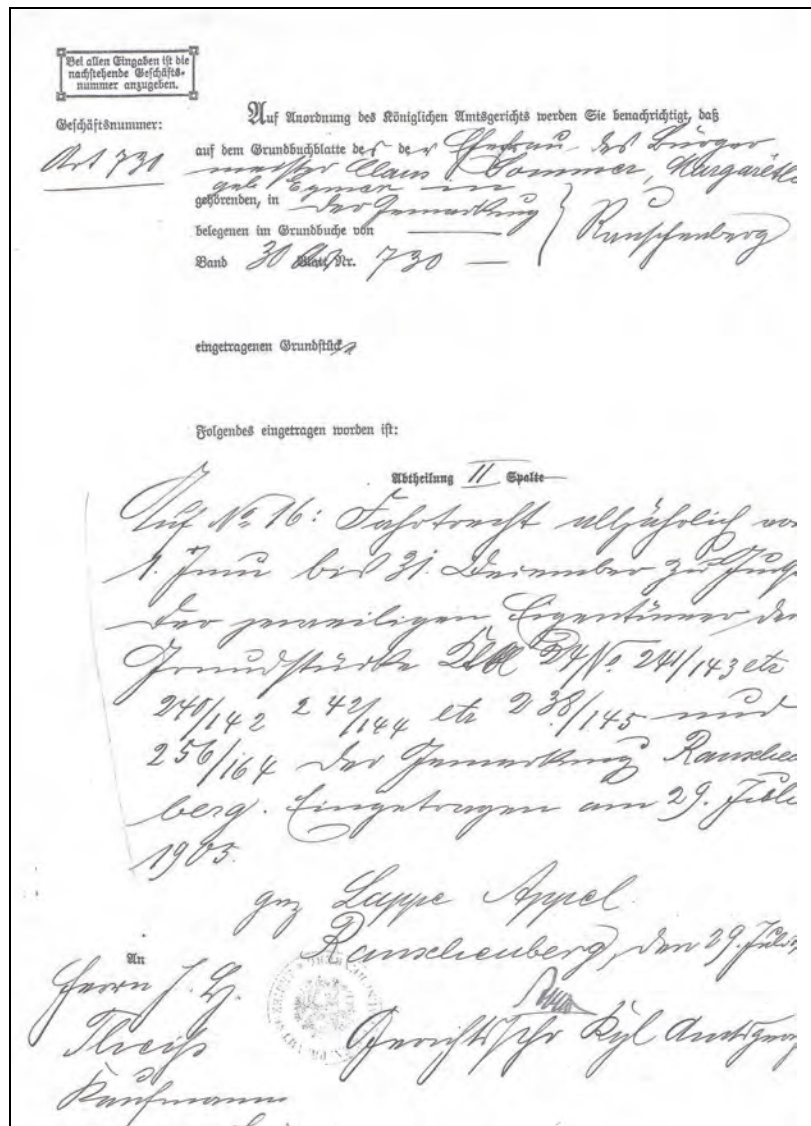 Bei allen Eingaben ist die
nachstehende Geschäfts-
nummer anzugeben.
Geschäftsnummer:
Art 730
Auf Anordnung des Königlichen Amtsgerichts werden Sie benachrichtigt, daß
auf dem Grundbuchblatte des der Ehefrau des Bürger
meister Claus Sommer, Margareth
geb. in
gehörenden, in der Gemarkung
belegenen im Grundbuche von
Rauschenberg
Band 30 Blatt Nr. 730
eingetragenen Grundstück
Folgendes eingetragen worden ist:
Abtheilung II Spalte
Auf No 16: Fahrtrecht alljährlich vo
1. Juni bis 31. Dezember zu
der jeweiligen Eigentümer der
Grundstücke 24 No 241/143 etc
240/142 242/144 etc 238/145 und
256/164 der Gemarkung Rauschen
berg. Eingetragen am 29. Juli
1905.
gez Lappe Appel.
Rauschenberg, den 29. Juli
An
Herrn J. H.
Theiß
Kaufmann
Gerichtsschr Kgl Amtsger